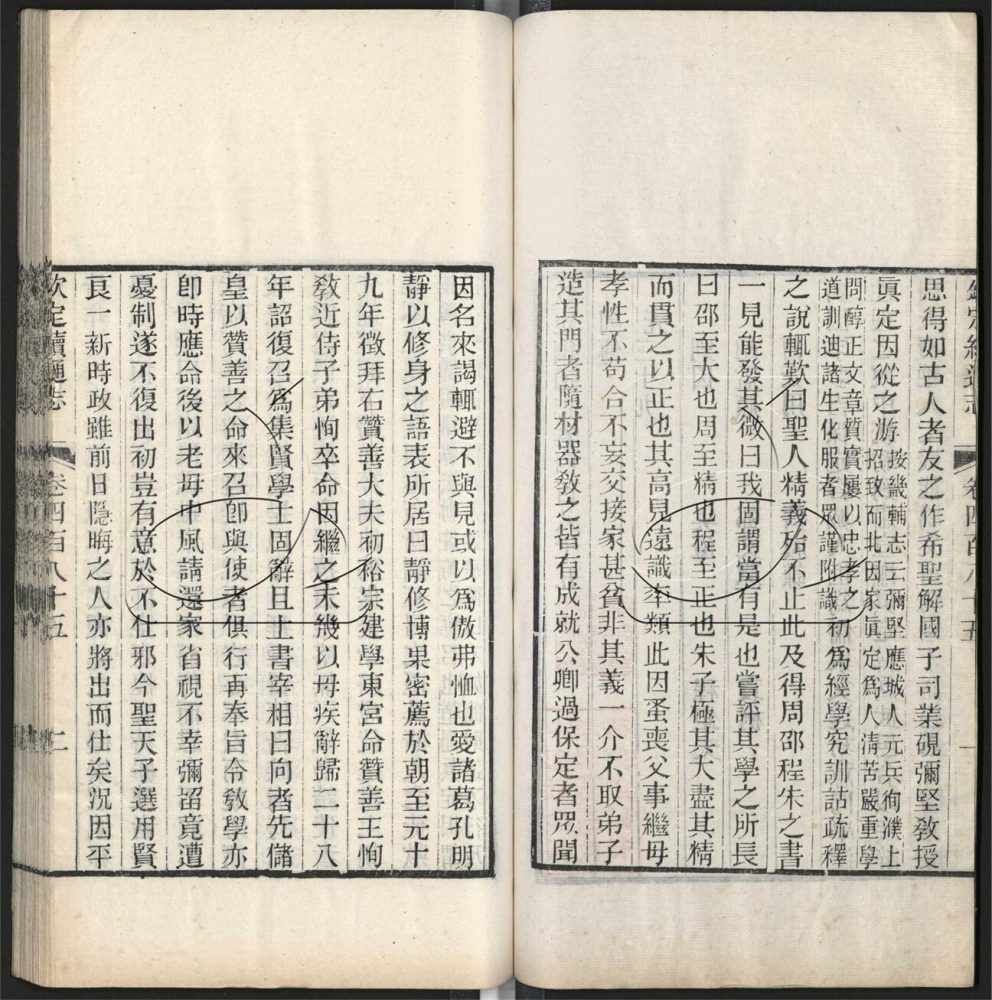 欽定續通志 卷四百八十五 一
思得如古人者友之作希聖解國子司業硯彌堅教授
眞定因從之游按畿輔志云彌堅應城人元兵徇濮上
招致而北因家眞定爲人清苦嚴重學
問醇正文章質實屢以忠孝之
道訓迪諸生化服者眾謹附識初爲經學究訓詁疏釋
之說輒歎曰聖人精義殆不止此及得周邵程朱之書
一見能發其微曰我固謂當有是也嘗評其學之所長
曰邵至大也周至精也程至正也朱子極其大盡其精
而貫之以正也其高見遠識率類此因蚤喪父事繼母
孝性不苟合不妄交接家甚貧非其義一介不取弟子
造其門者隨材器敎之皆有成就公卿過保定者眾聞
因名來謁輒避不與見或以爲傲弗恤也愛諸葛孔明
靜以修身之語表所居曰靜修博果密薦於朝至元十
九年徵拜右贊善大夫初裕宗建學東宮命贊善王恂
敎近侍子弟恂卒命因繼之未幾以母疾辭歸二十八
年詔復召爲集賢學士固辭且上書宰相曰向者先儲
皇以贊善之命來召卽與使者俱行再奉旨令敎學亦
卽時應命後以老母中風請還家省視不幸彌留竟遭
憂制遂不復出初豈有意於不仕邪今聖天子選用賢
良一新時政雖前日隱晦之人亦將出而仕矣況因平
欽定續通志 卷四百八十五 二